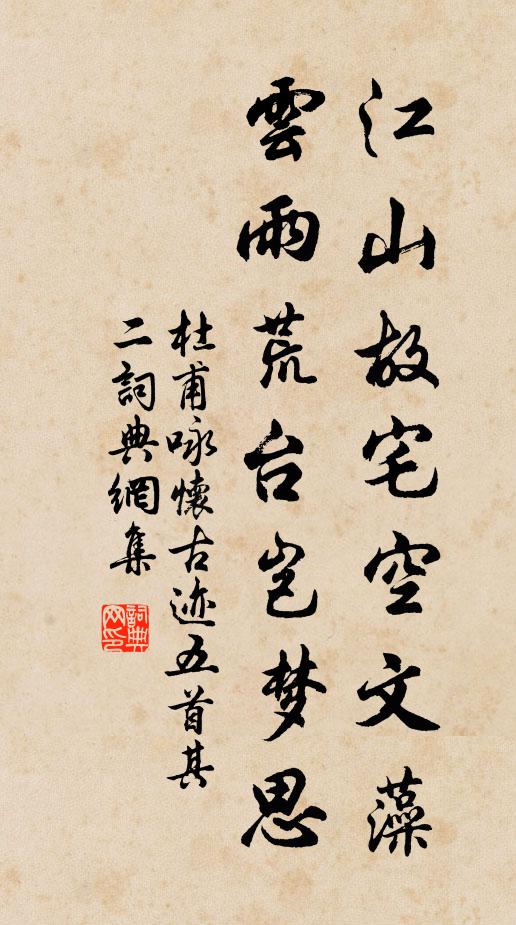 江山故宅空文藻
雲雨荒台岂梦思
杜甫咏懷古迹五首其
二詞典網集
詞典网印